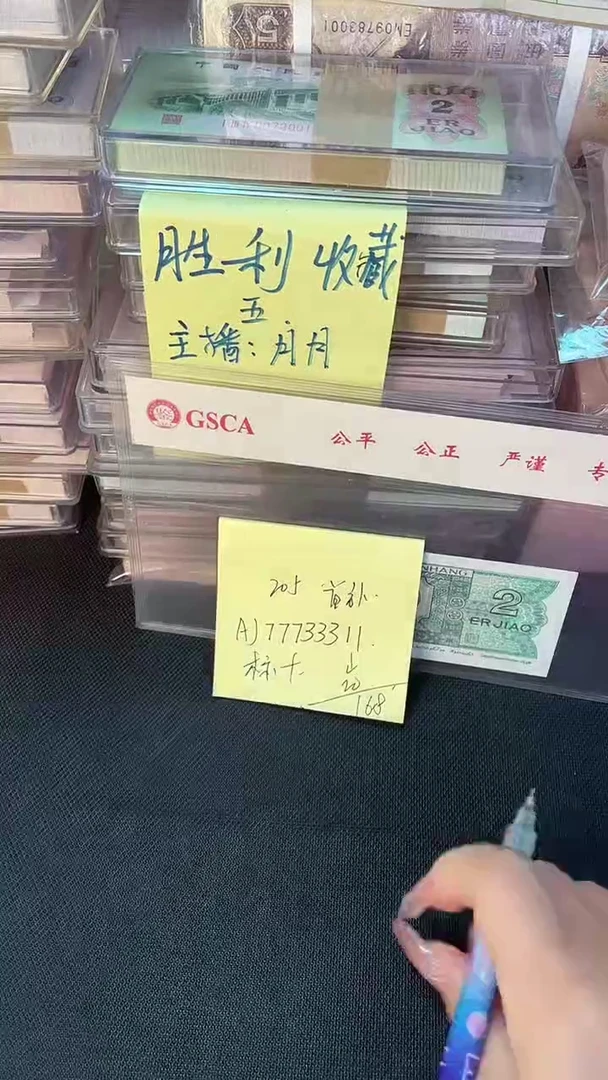 5
EM09763001
贰角
2
ER
JIAO
胜利收藏
五.
主播：月月
GSCA
公平 公正 严谨 专
NHANG
2
ER JIAO
205 首补.
AJ77733311.
标十.
20
168